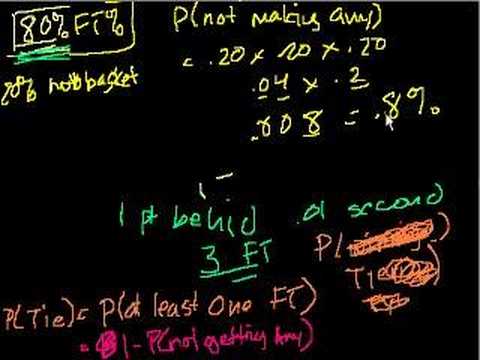 80% FT%
20% not basket
P(not making any)
= .20 x 20 x .20
.04 x .2
.008 = .8%
1 pt behid .01 second
3 FT
P(
Tie
P(Tie) = P(at least one FT)
= 1 - P(not getting any)